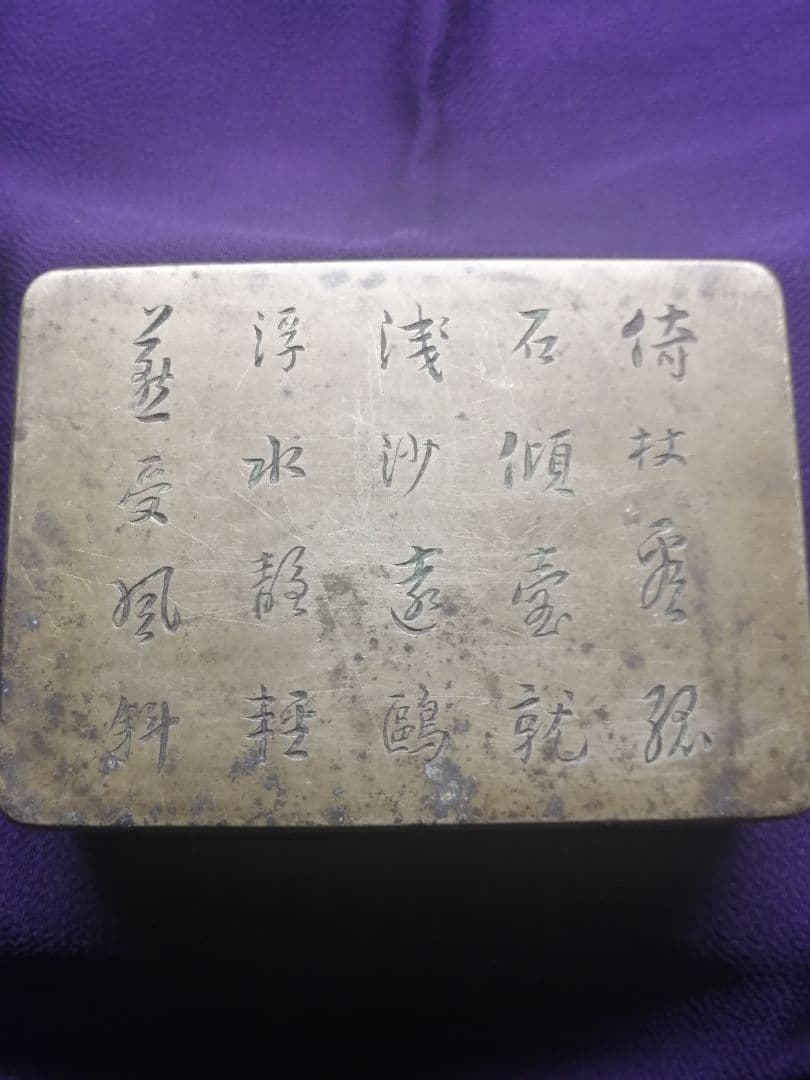 倚杖看孤
石傾壺就
淺沙遠鷗
浮水静輕
燕受風斜